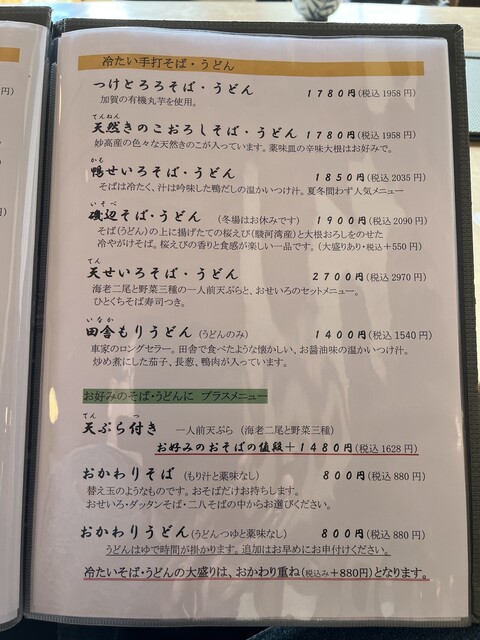 冷たい手打そば・うどん
つけとろろそば・うどん 1780円(税込 1958 円)
加賀の有機丸芋を使用。
てんねん
天然きのこおろしそば・うどん 1780円(税込 1958 円)
妙高産の色々な天然きのこが入っています。薬味皿の辛味大根はお好みで。
かも
鴨せいろそば・うどん 1850円(税込 2035 円)
そばは冷たく、汁は吟味した鴨だしの温かいつけ汁。夏冬問わず人気メニュー
いそべ
磯辺そば・うどん (冬場はお休みです) 1900円(税込 2090 円)
そば(うどん)の上に揚げたての桜えび(駿河湾産)と大根おろしをのせた
冷やがけそば。桜えびの香りと食感が楽しい一品です。(大盛りあり・税込+550 円)
てん
天せいろそば・うどん 2700円(税込 2970 円)
海老二尾と野菜三種の一人前天ぷらと、おせいろのセットメニュー。
ひとくちそば寿司つき。
いなか
田舎もりうどん (うどんのみ) 1400円(税込 1540 円)
車家のロングセラー。田舎で食べたような懐かしい、お醤油味の温かいつけ汁。
炒め煮にした茄子、長葱、鴨肉が入っています。
お好みのそば・うどんに プラスメニュー
てん つ
天ぷら付き 一人前天ぷら (海老二尾と野菜三種)
お好みのおそばの値段+1480円(税込 1628 円)
おかわりそば (もり汁と薬味なし) 800円(税込 880 円)
替え玉のようなものです。おそばだけお持ちします。
おせいろ・ダッタンそば・二八そばの中からお選びください。
おかわりうどん(うどんつゆと薬味なし) 800円(税込 880 円)
うどんはゆで時間が掛かります。追加はお早めにお申付けください。
冷たいそば・うどんの大盛りは、おかわり重ね(税込み+880円)となります。